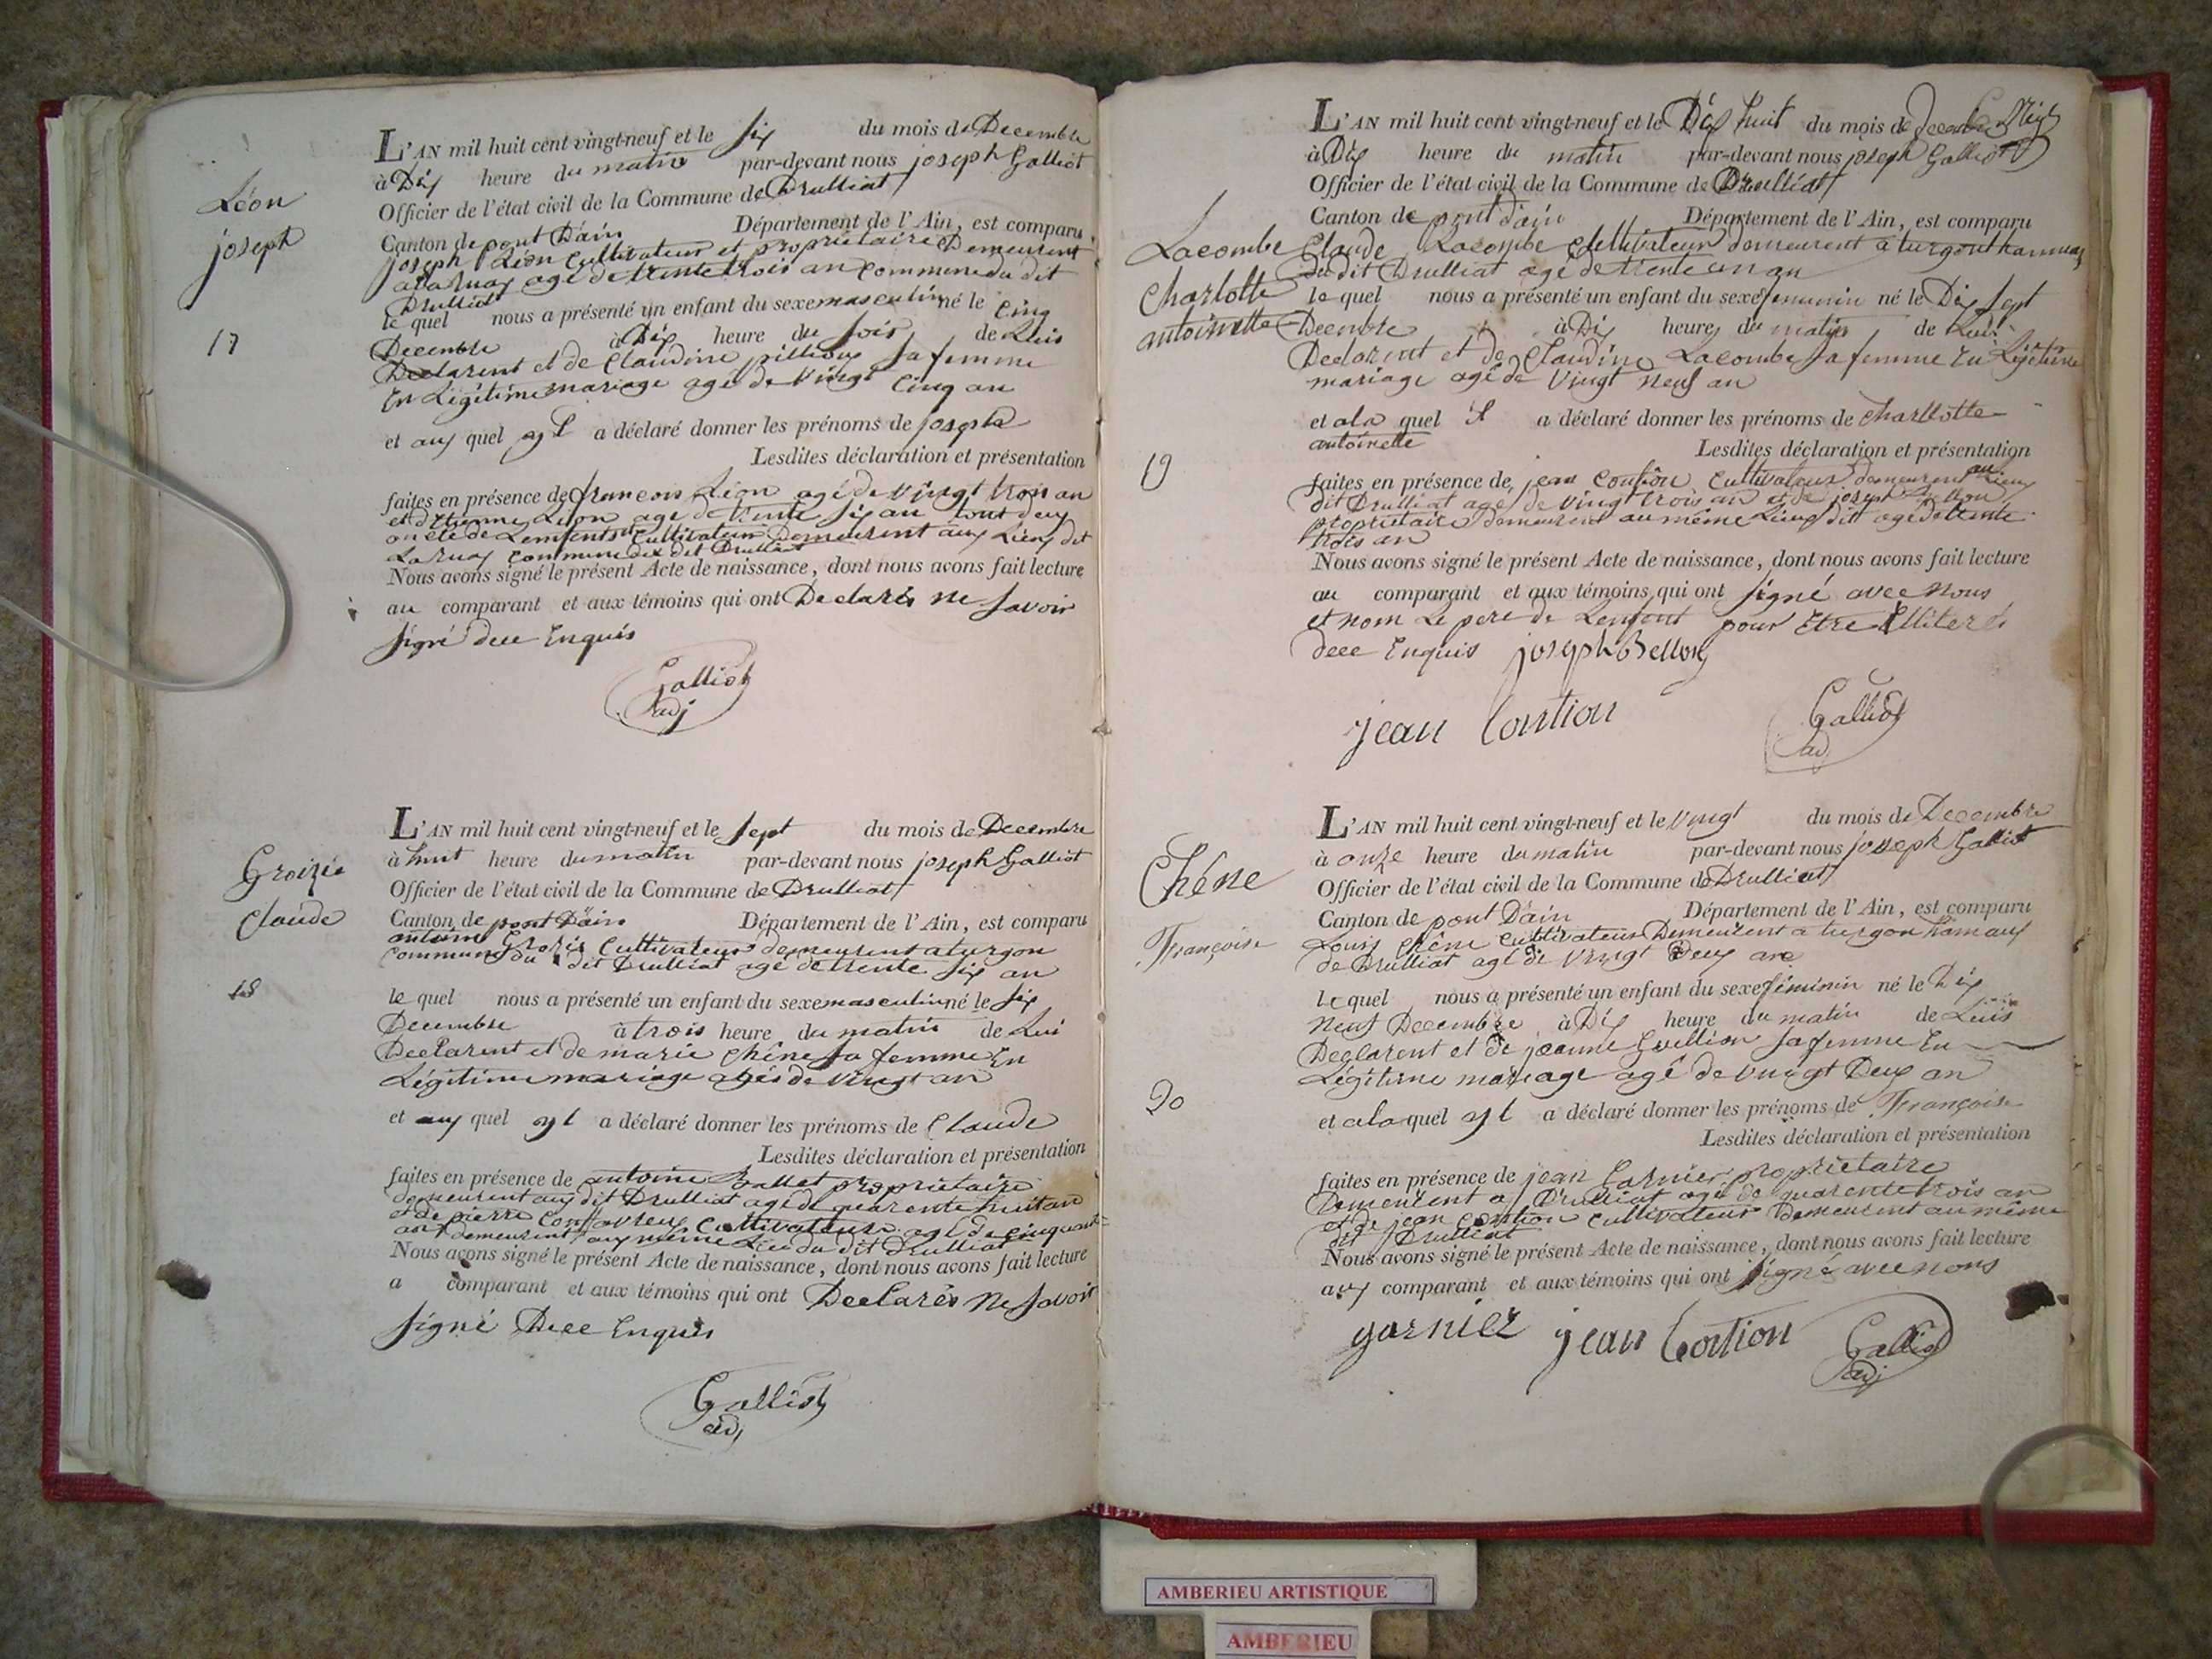 Léon
joseph
17
L'AN mil huit cent vingt-neuf et le six du mois de Decembre
à Dix heure du matin par-devant nous joseph Galliot
Officier de l'état civil de la Commune de Drulliat
Canton de pont Dain Département de l'Ain, est comparu
joseph Léon Cultivateur et propriétaire Demeurent
a agé de trente trois an Commune du dit
Drulliat
le quel nous a présenté un enfant du sexe masculin né le cinq
Decembre à Dix heure du soir de Luis
Declarent et de Claudine sa femme
En Légitime mariage agé de vingt cinq an
et aux quel yl a déclaré donner les prénoms de joseph
Lesdites déclaration et présentation
faites en présence de francois Léon agé de vingt trois an
et detienne Léon agé de trente six an tout deux
de Lenfent Cultivateur Demeurent aux Lieux dit
Laruaz commune dit Drulliat
Nous avons signé le présent Acte de naissance, dont nous avons fait lecture
au comparant et aux témoins qui ont Declarés ne savoir
signé deee Enquis
Galliot
adj
Groizié
Claude
18
L'AN mil huit cent vingt-neuf et le sept du mois de Decembre
à huit heure du matin par-devant nous joseph Galliot
Officier de l'état civil de la Commune de Drulliat
Canton de pont Dain Département de l'Ain, est comparu
antoine Cultivateur demeurent a turgon
commune du dit Drulliat agé de trente six an
le quel nous a présenté un enfant du sexe masculin né le six
Decembre à trois heure du matin de Lui
Declarent et de marie chêne sa femme En
Légitime mariage agés de vingt an
et aux quel yl a déclaré donner les prénoms de Claude
Lesdites déclaration et présentation
faites en présence de antoine Ballet propriétaire
demeurent aux dit Drulliat agé de quarente huit an
et de pierre Cultivateur agé de cinquante
ans demeurent aux même Lieu du dit Drulliat
Nous avons signé le présent Acte de naissance, dont nous avons fait lecture
a comparant et aux témoins qui ont Declarés ne savoir
signé Deee Enquis
Galliot
adj
Lacombe
Charlotte
antoinette
19
L'AN mil huit cent vingt-neuf et le Dix huit du mois de Decembre
à Dix heure du matin par-devant nous joseph Galliot
Officier de l'état civil de la Commune de Drulliat
Canton de pont dain Département de l'Ain, est comparu
Claude Lacombe Cultivateur demeurent a turgont hammaux
du dit Drulliat agé de trente un an
le quel nous a présenté un enfant du sexe femunin né le Dix sept
Decembre à Dix heures du matin de Lui
Declarent et de Claudine Lacombe sa femme En Légitime
mariage agé de vingt neuf an
et a la quel il a déclaré donner les prénoms de Charllotte
antoinette
Lesdites déclaration et présentation
faites en présence de jean Contion Cultivateur demeurent au Lieux
dit Drulliat agé de vingt trois an et de joseph Bellon
propriétaire demeurent au même Lieux dit agé de trente
trois an
Nous avons signé le présent Acte de naissance, dont nous avons fait lecture
au comparant et aux témoins qui ont signé avec nous
et nom Le pere de Lenfent pour Etre Elliterés
deee Enquis joseph Bellon
jean Contion
Galliot
adj
Chéne
Françoise
20
L'AN mil huit cent vingt-neuf et le vingt du mois de Decembre
à onze heure du matin par-devant nous joseph Galliot
Officier de l'état civil de la Commune de Drulliat
Canton de pont Dain Département de l'Ain, est comparu
Louis chêne Cultivateur Demeurent a turgon hamaux
de Drulliat agé de vingt Deux ans
le quel nous a présenté un enfant du sexe féminin né le Dix
neuf Decembre à Dix heure du matin de Luis
Declarent et de jeanne Guillion sa femme En
Légitime mariage agé de vingt Deux an
et a la quel yl a déclaré donner les prénoms de Françoise
Lesdites déclaration et présentation
faites en présence de jean Garnier propriétaire
Demeurent a Drulliat agé de quarente trois an
et de jean Contion Cultivateur demeurent au même
dit Drulliat
Nous avons signé le présent Acte de naissance, dont nous avons fait lecture
aux comparant et aux témoins qui ont signé avec nous
garnier jean Contion Galliot
adj
AMBERIEU ARTISTIQUE
AMBERIEU